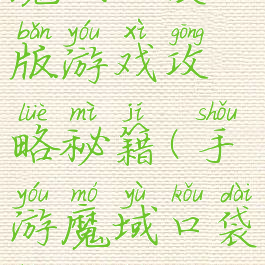 bǎn yóu xì gōng
版游戏攻
lüè mì jí shǒu
略秘籍(手
yóu mó yù kǒu dài
游魔域口袋